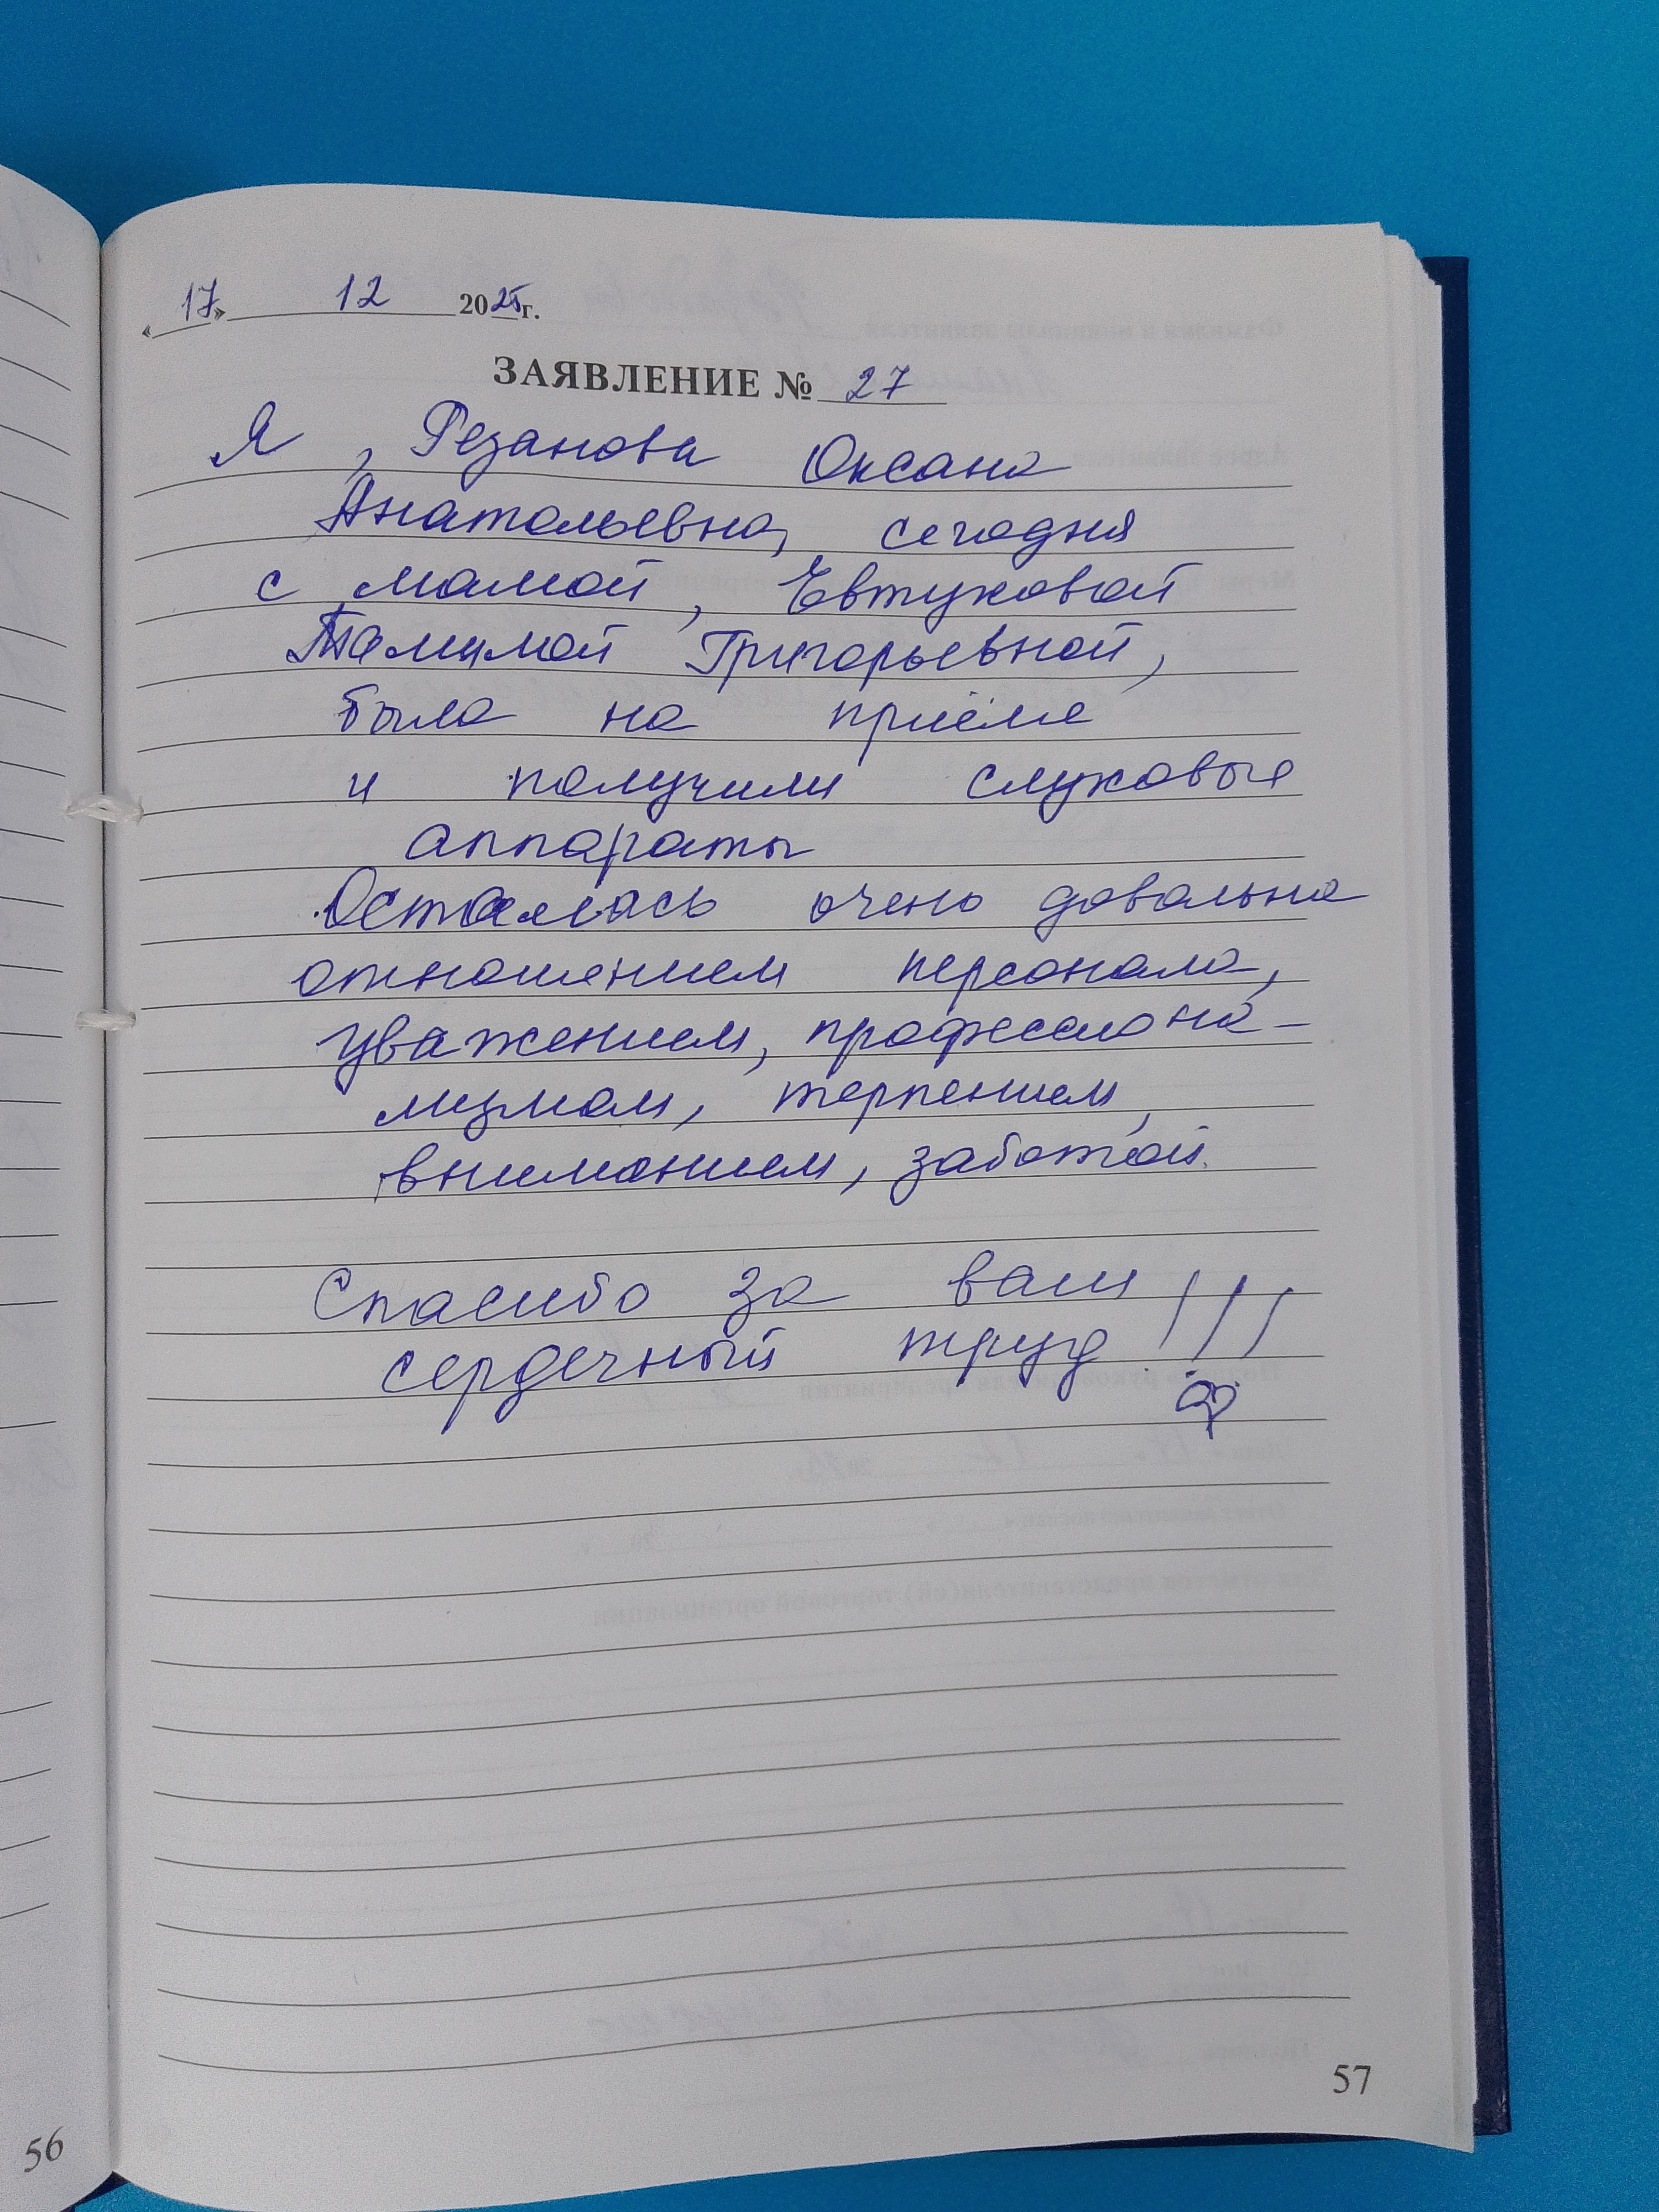 « 17 » 12 2025 г.
ЗАЯВЛЕНИЕ № 27
Я, Резанова Оксана
Анатольевна, сегодня
с мамой, Евтуховой
Тамилой Григорьевной,
была на приёме
и получили слуховые
аппараты
Осталась очень довольна
отношением персонала,
уважением, професиона-
лизмом, терпением,
вниманием, заботой.
Спасибо за ваш
сердечный труд!!!
57
56